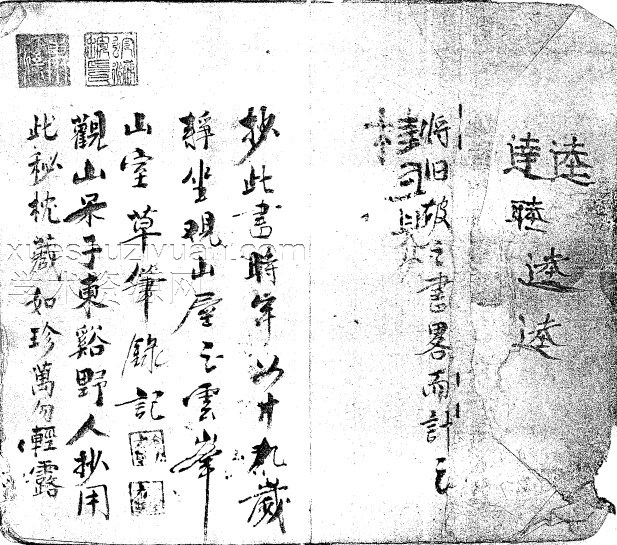 逵逵
睦
逵
逵
将旧破之書畧而計之
抄此書時年以廿九歲
靜坐观山屋之雲峯
山室草筆錄記
觀山呆子東谿野人抄用
此秘枕藏如珍萬勿輕露
xueshuziyuan.com
学术资源网